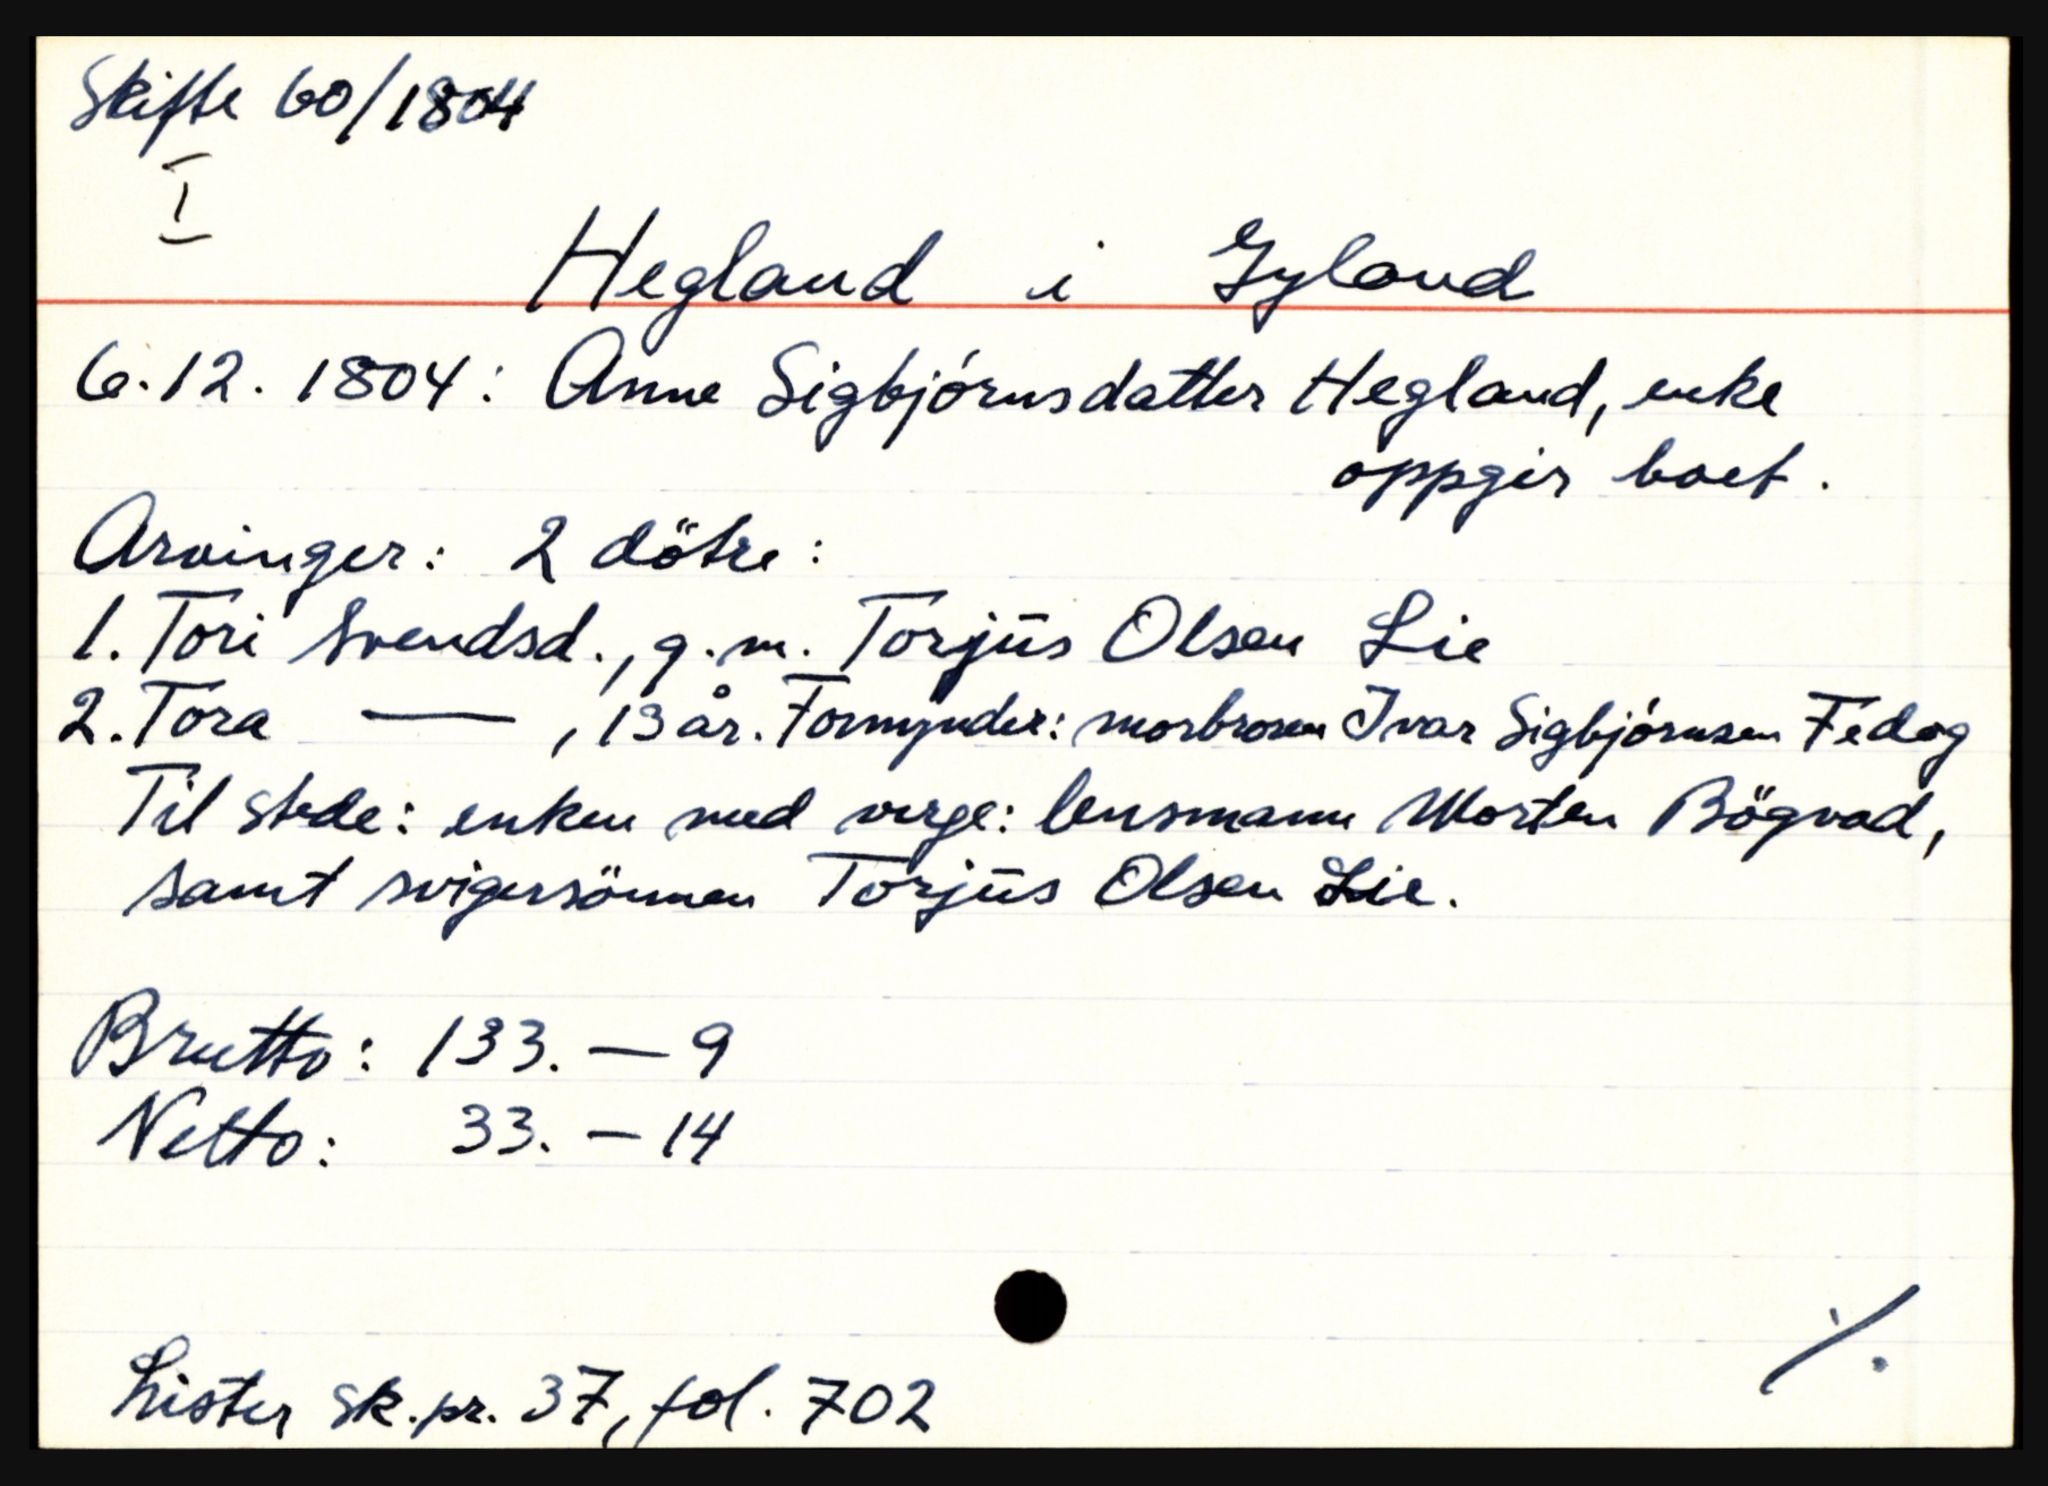 Skifte 60/1804
I
Hegland i Gyland
6.12.1804: Anne Sigbjórnsdatter Hegland, enke
oppgir boet.
Arvinger: 2 dötre:
1. Tori Svendsd., g.m. Torjus Olsen Lie
2. Tora — , 13 år. Formynder: morbroren Ivar Sigbjórnsen Fedog
Til stede: enken med verge: lensmann Morten Bögvad,
samt svigersönnen Torjus Olsen Lie.
Brutto: 133. — 9
Netto: 33. — 14
Lister sk.pr. 37, fol. 702
./.